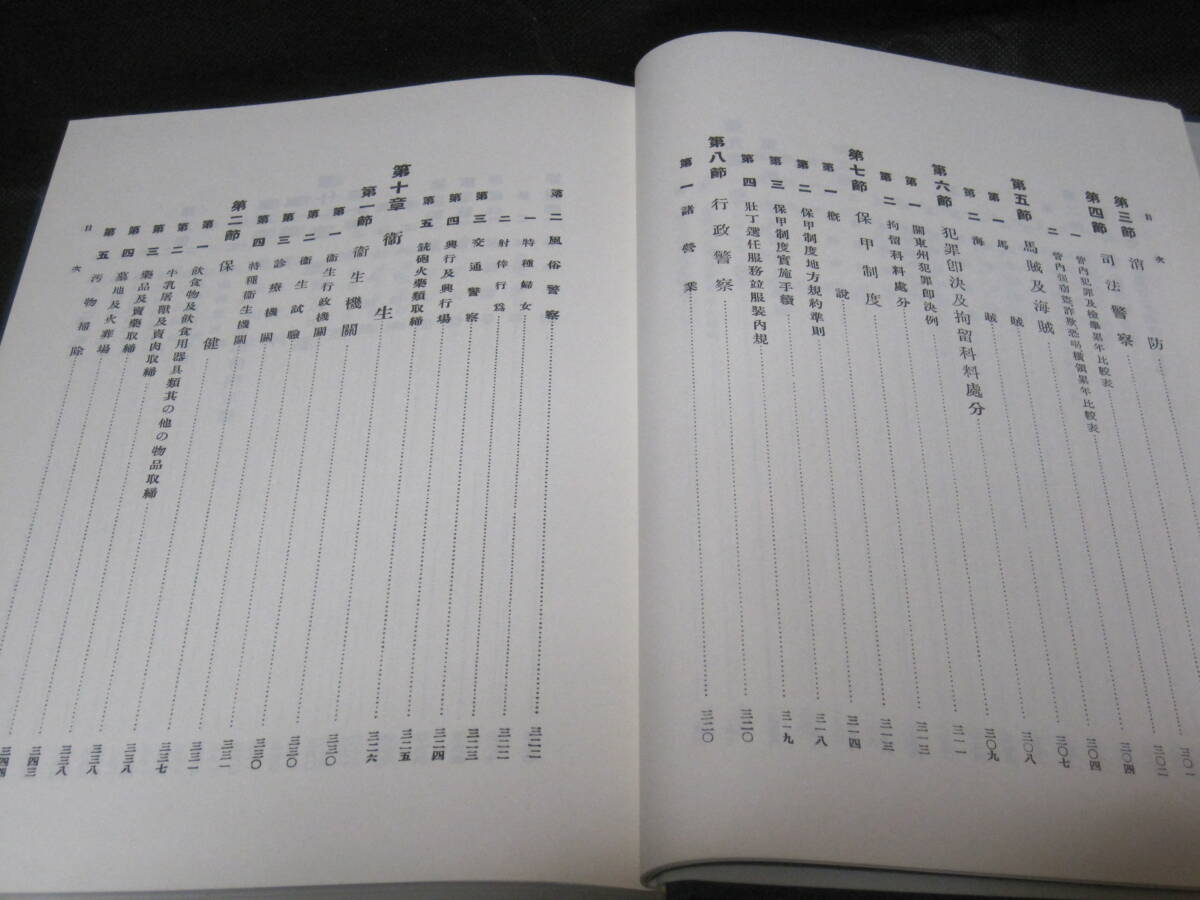 目次
第三節 消防
第四節 司法警察
一 管内犯罪及檢擧累年比較表
二 管内强竊盜詐欺恐喝橫領累年比較表
第五節 馬賊及海賊
第一 馬賊
第二 海賊
第六節 犯罪即決及拘留科料處分
第一 關東州犯罪即決例
第二 拘留科料處分
第七節 保甲制度
第一 概說
第二 保甲制度地方規約準則
第三 保甲制度實施手續
第四 壯丁選任服務竝服裝內規
第八節 行政警察
第一 諸營業
三〇一
三〇二
三〇四
三〇四
三〇七
三〇八
三〇九
三一一
三一三
三一三
三一四
三一八
三一九
三二〇
三二〇
第二 風俗警察
一 特種婦女
二 射倖行爲
第三 交通警察
第四 興行及興行場
第五 銃砲火藥類取締
第十章 衞生
第一節 衞生機關
第一 衞生行政機關
第二 衞生試驗
第三 診療機關
第四 特種衞生機關
第二節 保健
第一 飮食物及飮食用器具類其の他の物品取締
第二 牛乳屠獸及賣肉取締
第三 藥品及賣藥取締
第四 墓地及火葬場
第五 汚物掃除
目次
三二二
三二二
三二三
三二四
三二五
三二六
三三〇
三三〇
三三〇
三三一
三三一
三三七
三三八
三三八
三三八
三四三
三四四